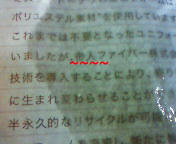 ポリエステル素材"を使用しています
これまでは不要となったユニフォ
いましたが、帝人ファイバー株式
技術を導入することにより、
に生まれ変わらせることが
半永久的なリサイクルが可能